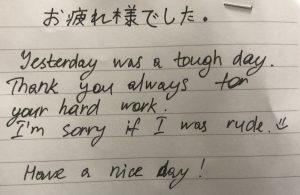 お疲れ様でした。
Yesterday was a tough day.
Thank you always for
your hard work.
I'm sorry if I was rude.
Have a nice day!